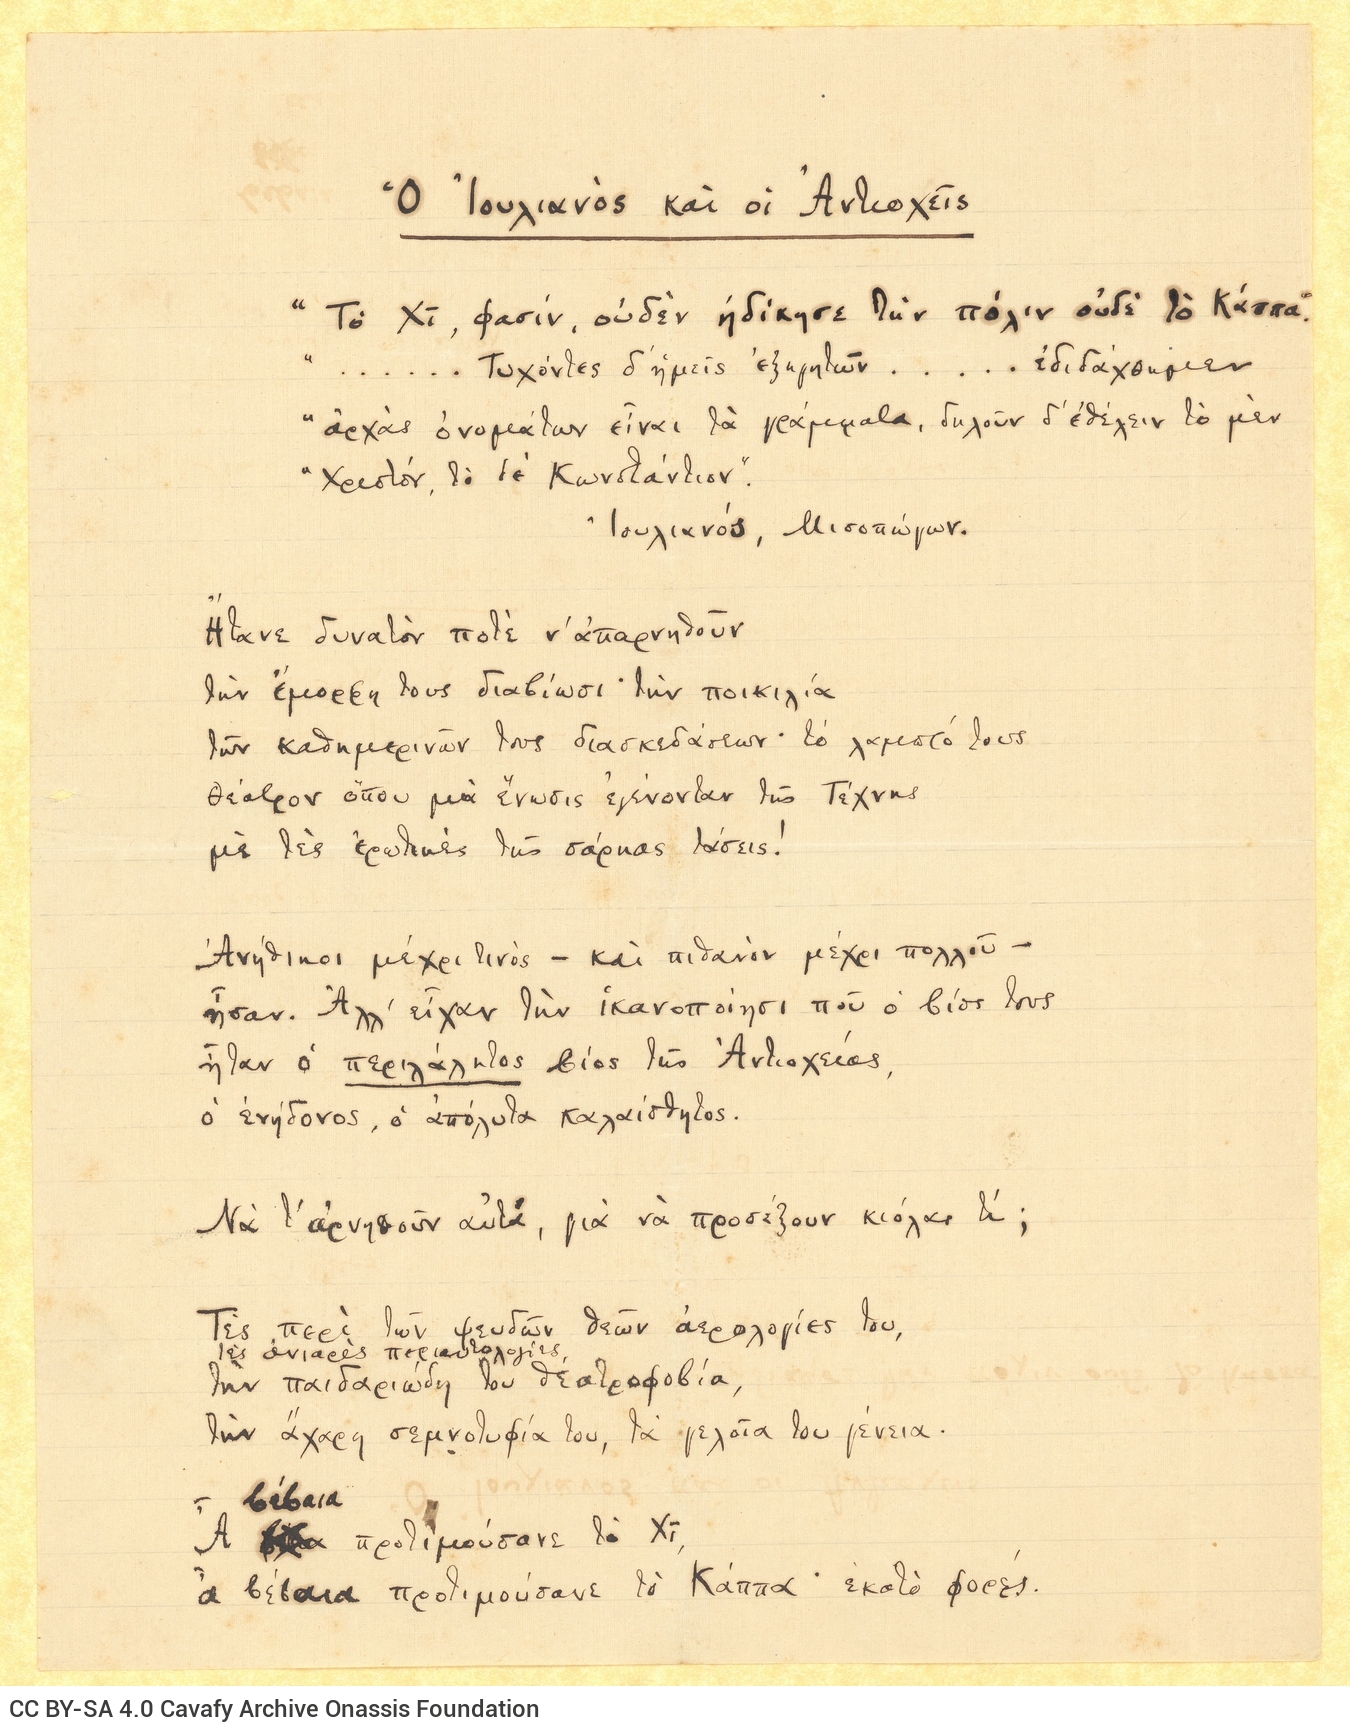 Ὁ Ἰουλιανὸς καὶ οἱ Ἀντιοχεῖς
“Τὸ Χῖ, φασίν, οὐδὲν ἠδίκησε τὴν πόλιν οὐδὲ τὸ Κάππα”.
“...... Τυχόντες δ’ ἡμεῖς ἐξηγητῶν ..... ἐδιδάχθημεν
“ἀρχὰς ὀνομάτων εἶναι τὰ γράμματα, δηλοῦν δ’ ἐθέλειν τὸ μὲν
“Χριστόν, τὸ δὲ Κωνστάντιον”.
Ἰουλιανός, Μισοπώγων.
Ἤτανε δυνατὸν ποτὲ ν’ ἀπαρνηθοῦν
τὴν ἔμορφη τους διαβίωσι· τὴν ποικιλία
τῶν καθημερινῶν τους διασκεδάσεων· τὸ λαμπρό τους
θέατρον ὅπου μιὰ ἕνωσις ἐγένονταν τῆς Τέχνης
μὲ τὲς ἐρωτικὲς τῆς σάρκας τάσεις!
Ἀνήθικοι μέχρι τινὸς – καὶ πιθανὸν μέχρι πολλοῦ –
ἦσαν. Ἀλλ’ εἶχαν τὴν ἱκανοποίησι ποῦ ὁ βίος τους
ἦταν ὁ περιλάλητος βίος τῆς Ἀντιοχείας,
ὁ ἐνήδονος, ὁ ἀπόλυτα καλαίσθητος.
Νὰ τ’ ἀρνηθοῦν αὐτά, γιὰ νὰ προσέξουν κιόλας τί;
Τὲς περὶ τῶν ψευδῶν θεῶν ἀερολογίες του,
τὲς ἀνιαρὲς περιαυτολογίες,
τὴν παιδαριώδη του θεατροφοβία,
τὴν ἄχαρη σεμνοτυφία του, τὰ γελοῖα του γένεια.
βέβαια
Ἆ προτιμούσανε τὸ Χῖ,
ἆ βέβαια προτιμούσανε τὸ Κάππα· ἑκατὸ φορές.
CC BY-SA 4.0 Cavafy Archive Onassis Foundation